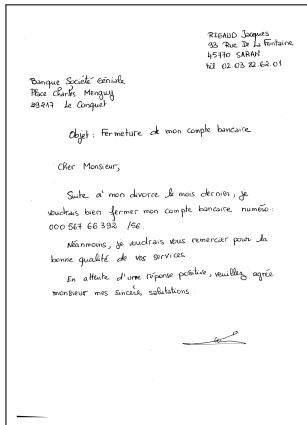 RIGAUD Jacques
93 Rue De La Fontaine
45770 SARAN
tél 02.03.82.62.01
Banque Société Générale
Place Charles Menguy
29217 Le Conquet
Objet : Fermeture de mon compte bancaire
Cher Monsieur,
Suite a' mon divorce le mois dernier, je
voudrais bien fermer mon compte bancaire numéro :
000 567 66 392 /56.
Néanmoins, je voudrais vous remercier pour la
bonne qualité de vos services.
En attente d'une réponse positive, veuillez agrée
monsieur mes sincère salutations.